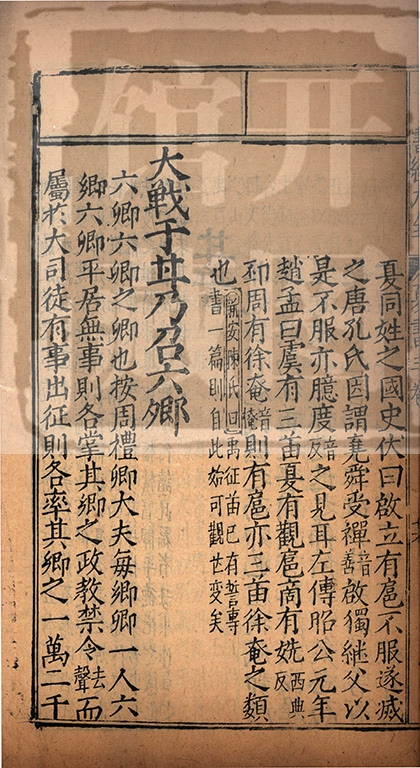 夏同姓之國史伏曰啟立有扈不服遂滅
之唐孔氏因謂堯舜受禪音善啟獨繼父以
是不服亦臆度反之見耳左傳昭公元年
趙孟曰虞有三苗夏有觀扈商有姺西典反
邳周有徐奄音則有扈亦三苗徐奄之類
也新安陳氏曰禹征苗已有誓專書一篇則自此始可觀世變矣
大戰于甘乃召六卿
六卿六鄉之卿也按周禮鄉大夫每鄉卿一人六
鄉六卿平居無事則各掌其鄉之政教禁令去聲而
屬於大司徒有事出征則各率其鄉之一萬二千